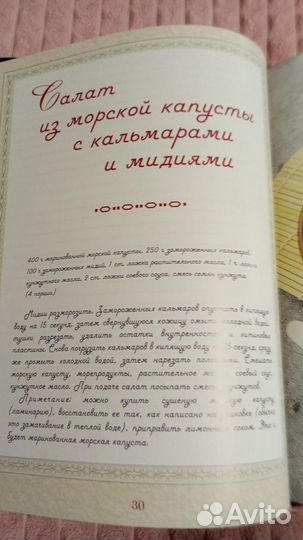 Салат
из морской капусты
с кальмарами
и мидиями
400 г маринованной морской капусты, 250 г замороженных кальмаров,
100 г замороженных мидий, 1 ст. ложка растительного масла, 1 ч. ложка
кунжутного масла, 2 ст. ложки соевого соуса, смесь семян кунжута
(4 порции)
Мидии разморозить. Замороженных кальмаров опустить в кипящую
воду на 15 секунд, затем свернувшуюся кожицу смыть холодной водой,
тушки разрезать, удалить остатки внутренностей и хитиновые
пластины. Снова погрузить кальмаров в кипящую воду на 15 секунд, сразу
же промыть холодной водой, затем нарезать Смешать
морскую капусту, морепродукты, растительное масло, соевый соус,
кунжутное масло. При подаче салат посыпать смесью кунжутов.
Примечание: можно купить сушеную морскую капусту
(ламинарию), восстановить ее так, как написано на упаковке (обычно
это замачивание в теплой воде), приправить лимонным соком. Это и
будет маринованная морская капуста.
30
Avito